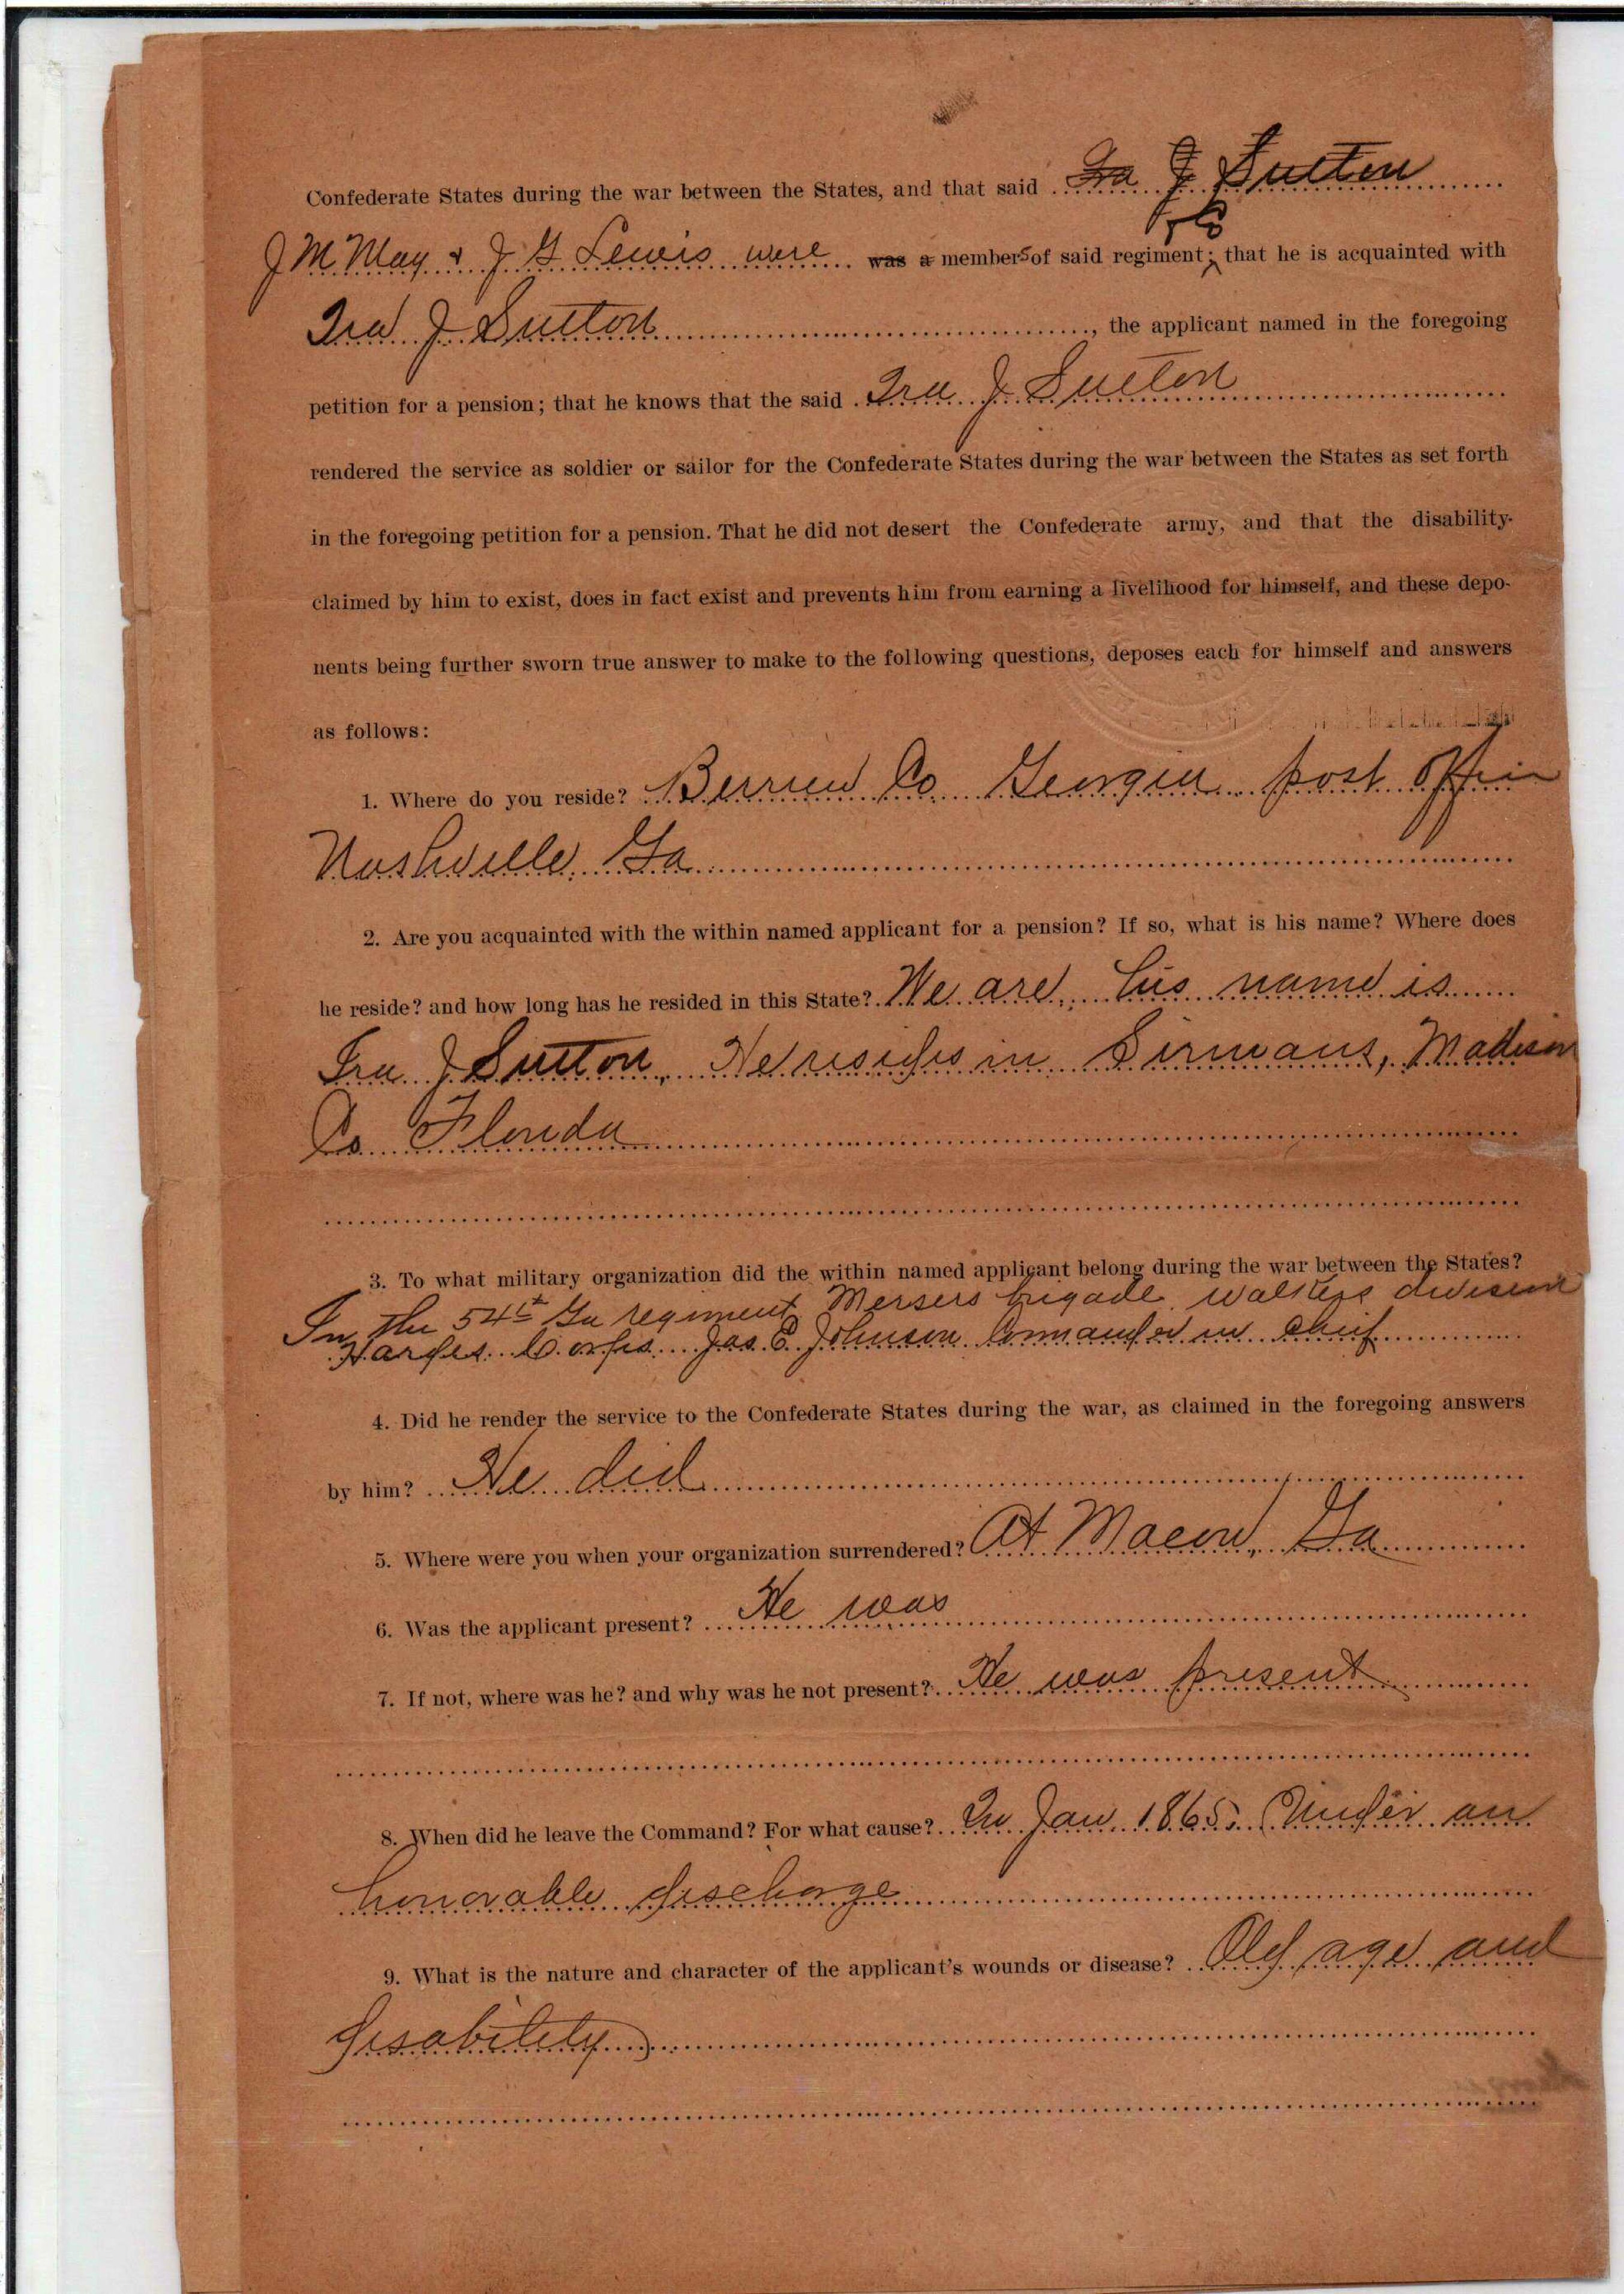 Confederate States during the war between the States, and that said Ira J Sutton
J M May & J G Lewis were was a members of said regiment; that he is acquainted with
Ira J Sutton, the applicant named in the foregoing
petition for a pension; that he knows that the said Ira J Sutton
rendered the service as soldier or sailor for the Confederate States during the war between the States as set forth
in the foregoing petition for a pension. That he did not desert the Confederate army, and that the disability
claimed by him to exist, does in fact exist and prevents him from earning a livelihood for himself, and these depo-
nents being further sworn true answer to make to the following questions, deposes each for himself and answers
as follows:
1. Where do you reside? Berrien Co Georgia post office
Nashville, Ga
2. Are you acquainted with the within named applicant for a pension? If so, what is his name? Where does
he reside? and how long has he resided in this State? We are, his name is
Ira J Sutton, He resides in Sirmans, Madison
Co Florida
3. To what military organization did the within named applicant belong during the war between the States?
In the 54th Ga regiment Mersers brigade, Walkers division
Hardes Corps Jos E Johnson Commander in chief
4. Did he render the service to the Confederate States during the war, as claimed in the foregoing answers
by him? He did
5. Where were you when your organization surrendered? At Macon, Ga
6. Was the applicant present? He was
7. If not, where was he? and why was he not present? He was present
8. When did he leave the Command? For what cause? In Jan 1865. Under an
honorable discharge
9. What is the nature and character of the applicant's wounds or disease? Old age and
disability